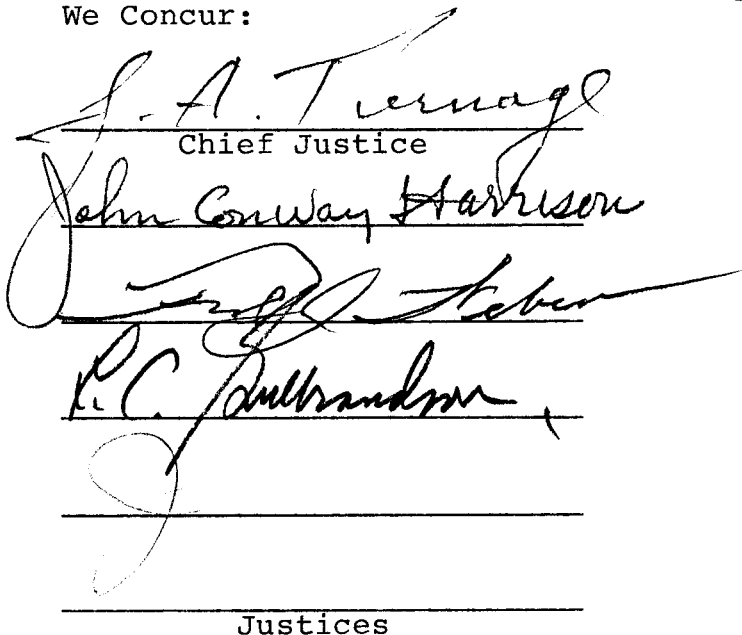 We Concur:
J. A. Turnage
Chief Justice
John Conway Harrison
Weber
L. C. Gulbrandson
Justices